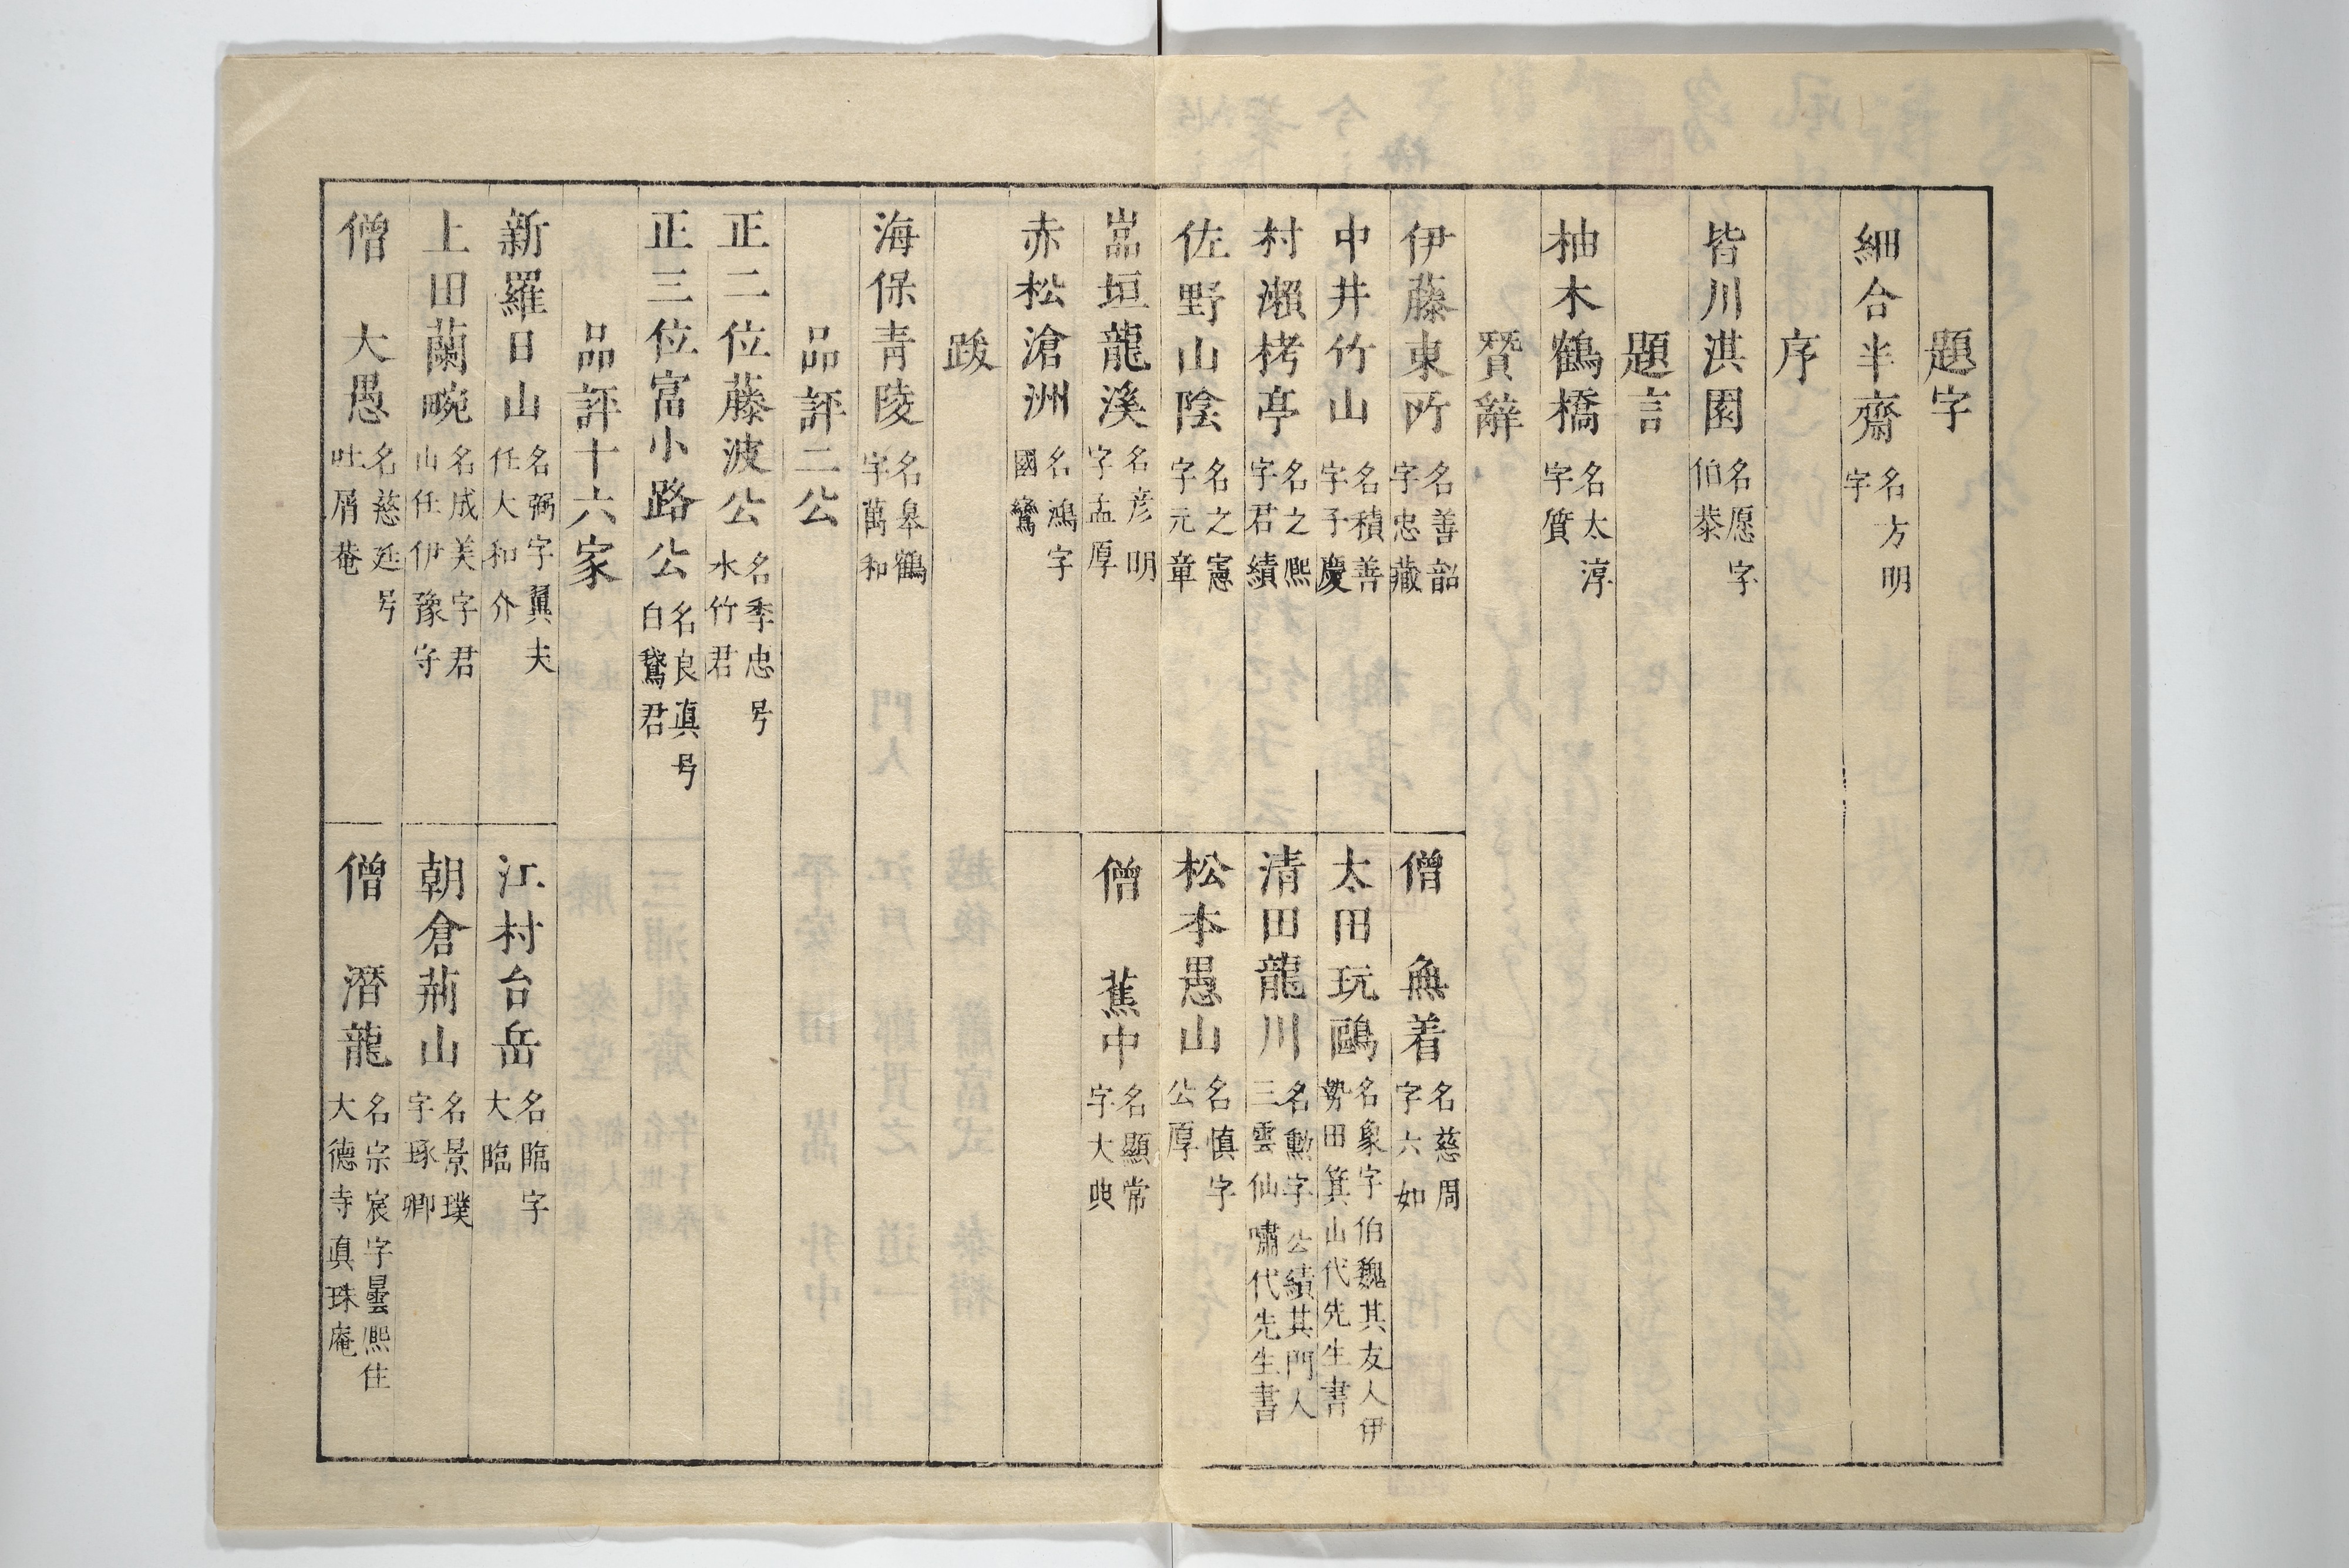 題字
細合半齋 名方明 字
序
皆川淇園 名愿字 伯恭
題言
柚木鶴橋 名太淳 字質
贊辭
伊藤東所 名善韶 字忠藏
僧 無着 名慈周 字六如
中井竹山 名積善 字子慶
太田玩鷗 名象字伯魏其友人伊 勢田箕山代先生書
村瀨栲亭 名之熈 字君績
清田龍川 名勲字公績其門人 三雲仙嘯代先生書
佐野山陰 名之憲 字元章
松本愚山 名愼字 公厚
嵓垣龍溪 名彦明 字孟厚
僧 蕉中 名顯常 字大典
赤松滄洲 名鴻字 國鸞
跋
海保青陵 名皋鶴 字萬和
品評二公
正二位藤波公 名季忠号 水竹君
正三位富小路公 名良眞号 白鵞君
品評十六家
新羅日山 名弼字翼夫 任大和介
江村台岳 名臨字 大臨
上田蘭畹 名成美字君 山任伊豫守
朝倉荊山 名景璞 字琢卿
僧 大愚 名慈延号 吐屑菴
僧 潛龍 名宗宸字曇熈住 大德寺眞珠庵